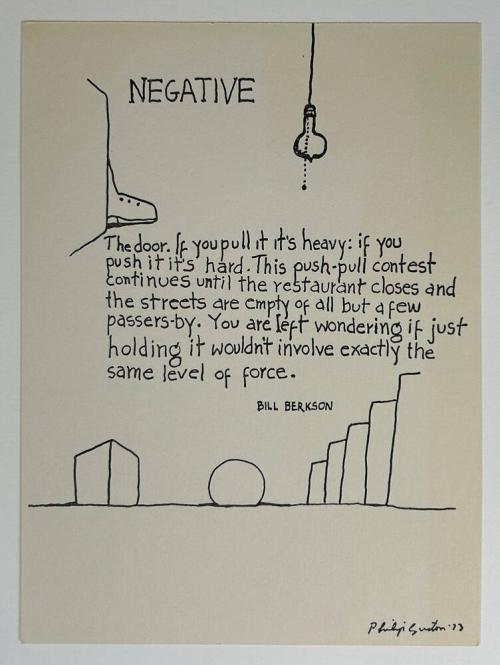 NEGATIVE
The door. If you pull it it's heavy: if you
push it it's hard. This push-pull contest
continues until the restaurant closes and
the streets are empty of all but a few
passers-by. You are left wondering if just
holding it wouldn't involve exactly the
same level of force.
BILL BERKSON
Philip Guston '73